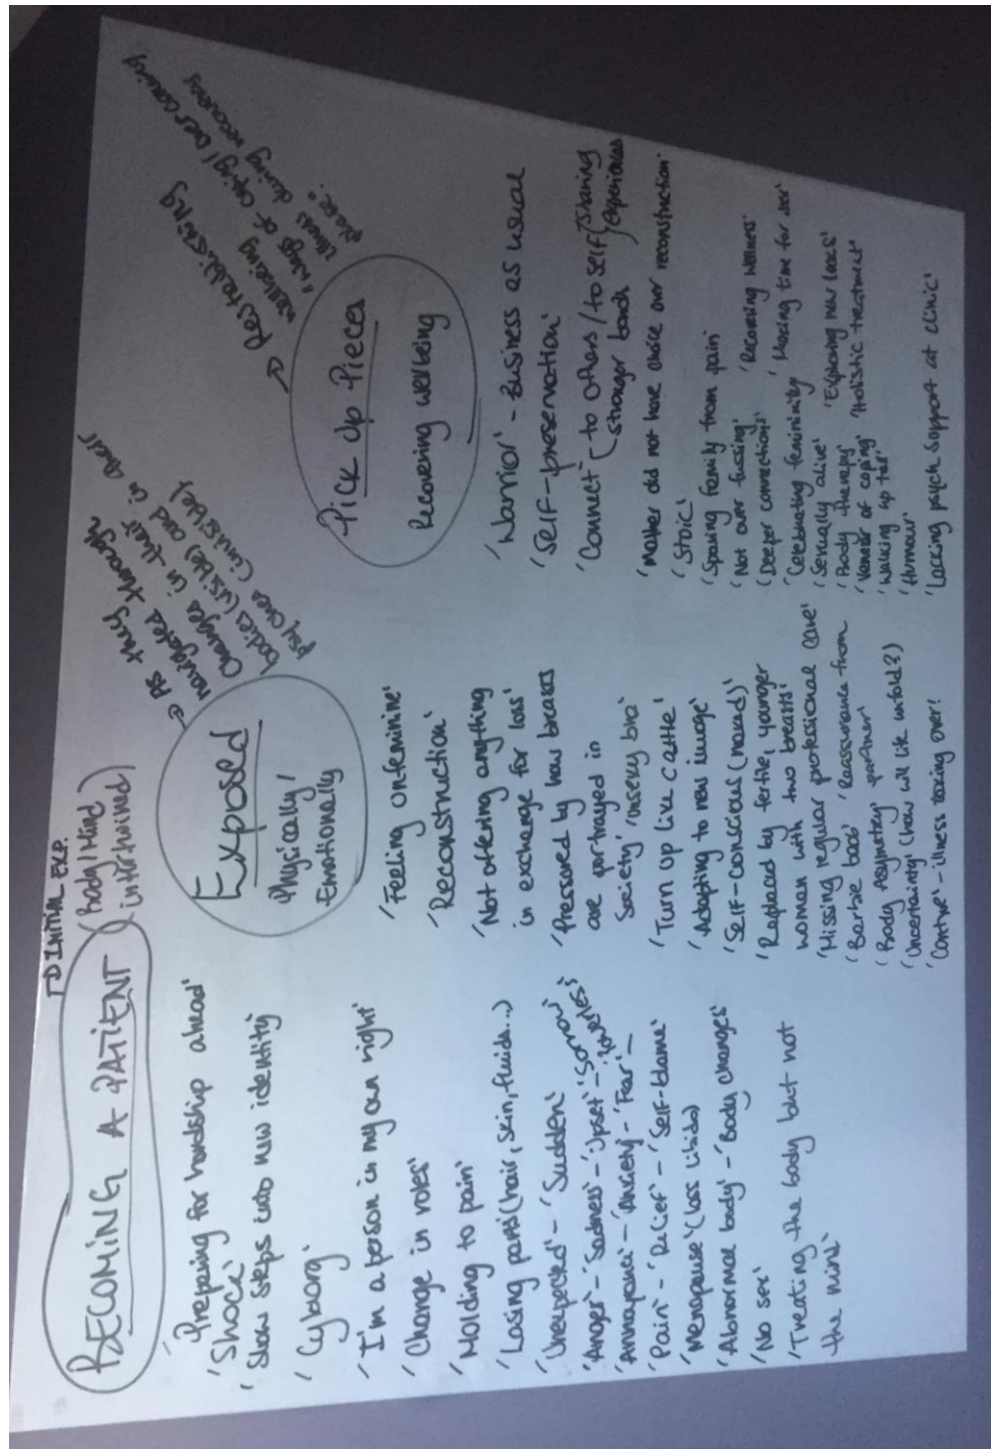 BECOMING A PATIENT
INITIAL EXP.
(Body/Mind
intertwined)
'Preparing for hardship ahead'
'Shock'
'Slow steps into new identity'
'Cyborg'
'I'm a person in my own right'
'Change in roles'
'Holding to pain'
'Losing parts' (hair, skin, fluids...)
'Unexpected' - 'Sudden'
'Anger' - 'Sadness' - 'Upset' - 'Sorrow'
'Annoyance' - 'Anxiety' - 'Fear' -
'Pain' - 'Relief' - 'Self-blame'
'Menopause' (loss libido)
'Abnormal body' - 'Body changes'
'No sex'
'Treating the body but not
the mind'
Exposed
Physically/
Emotionally
As they
navigate through
changes in their
bodies (visible) and in their
psyches (invisible).
'Feeling unfeminine'
'Reconstruction'
'Not offering anything
in exchange for loss'
'Pressured by how breasts
are portrayed in
Society' bra'
'Turn up like cattle'
'Adapting to new image'
'Self-conscious (naked)'
'Replaced by fertile, younger
woman with two breasts'
'Missing regular professional care'
'Barbie boob' 'Reassurance from
'Body Asymmetry' partner'
'Uncertainty' (how will life unfold?)
- illness taking over!
Pick Up Pieces
Recovering wellbeing
Reestablishing
wellbeing
"ways of coping/overcoming
illness during recovery
'Warrior' - Business as usual
'Self-preservation'
'Connect' to others/to self (Sharing
(stronger bonds experiences
'Mother did not have choice over reconstruction'
'Stoic'
'Sparing family from pain'
'Not over fussing'
'Recovering wellness'
'Deeper connections'
'Celebrating femininity' 'Having time for
'Sexually alive'
'Body therapy' 'Exploring new looks'
'Veneer of coping' 'Holistic treatment'
'Walking up tall'
'Humour'
'Lacking psych support at clinic'